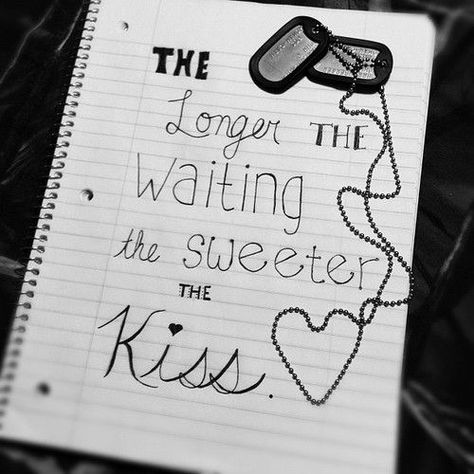 THE
Longer THE
Waiting
the sweeter
THE
Kiss.